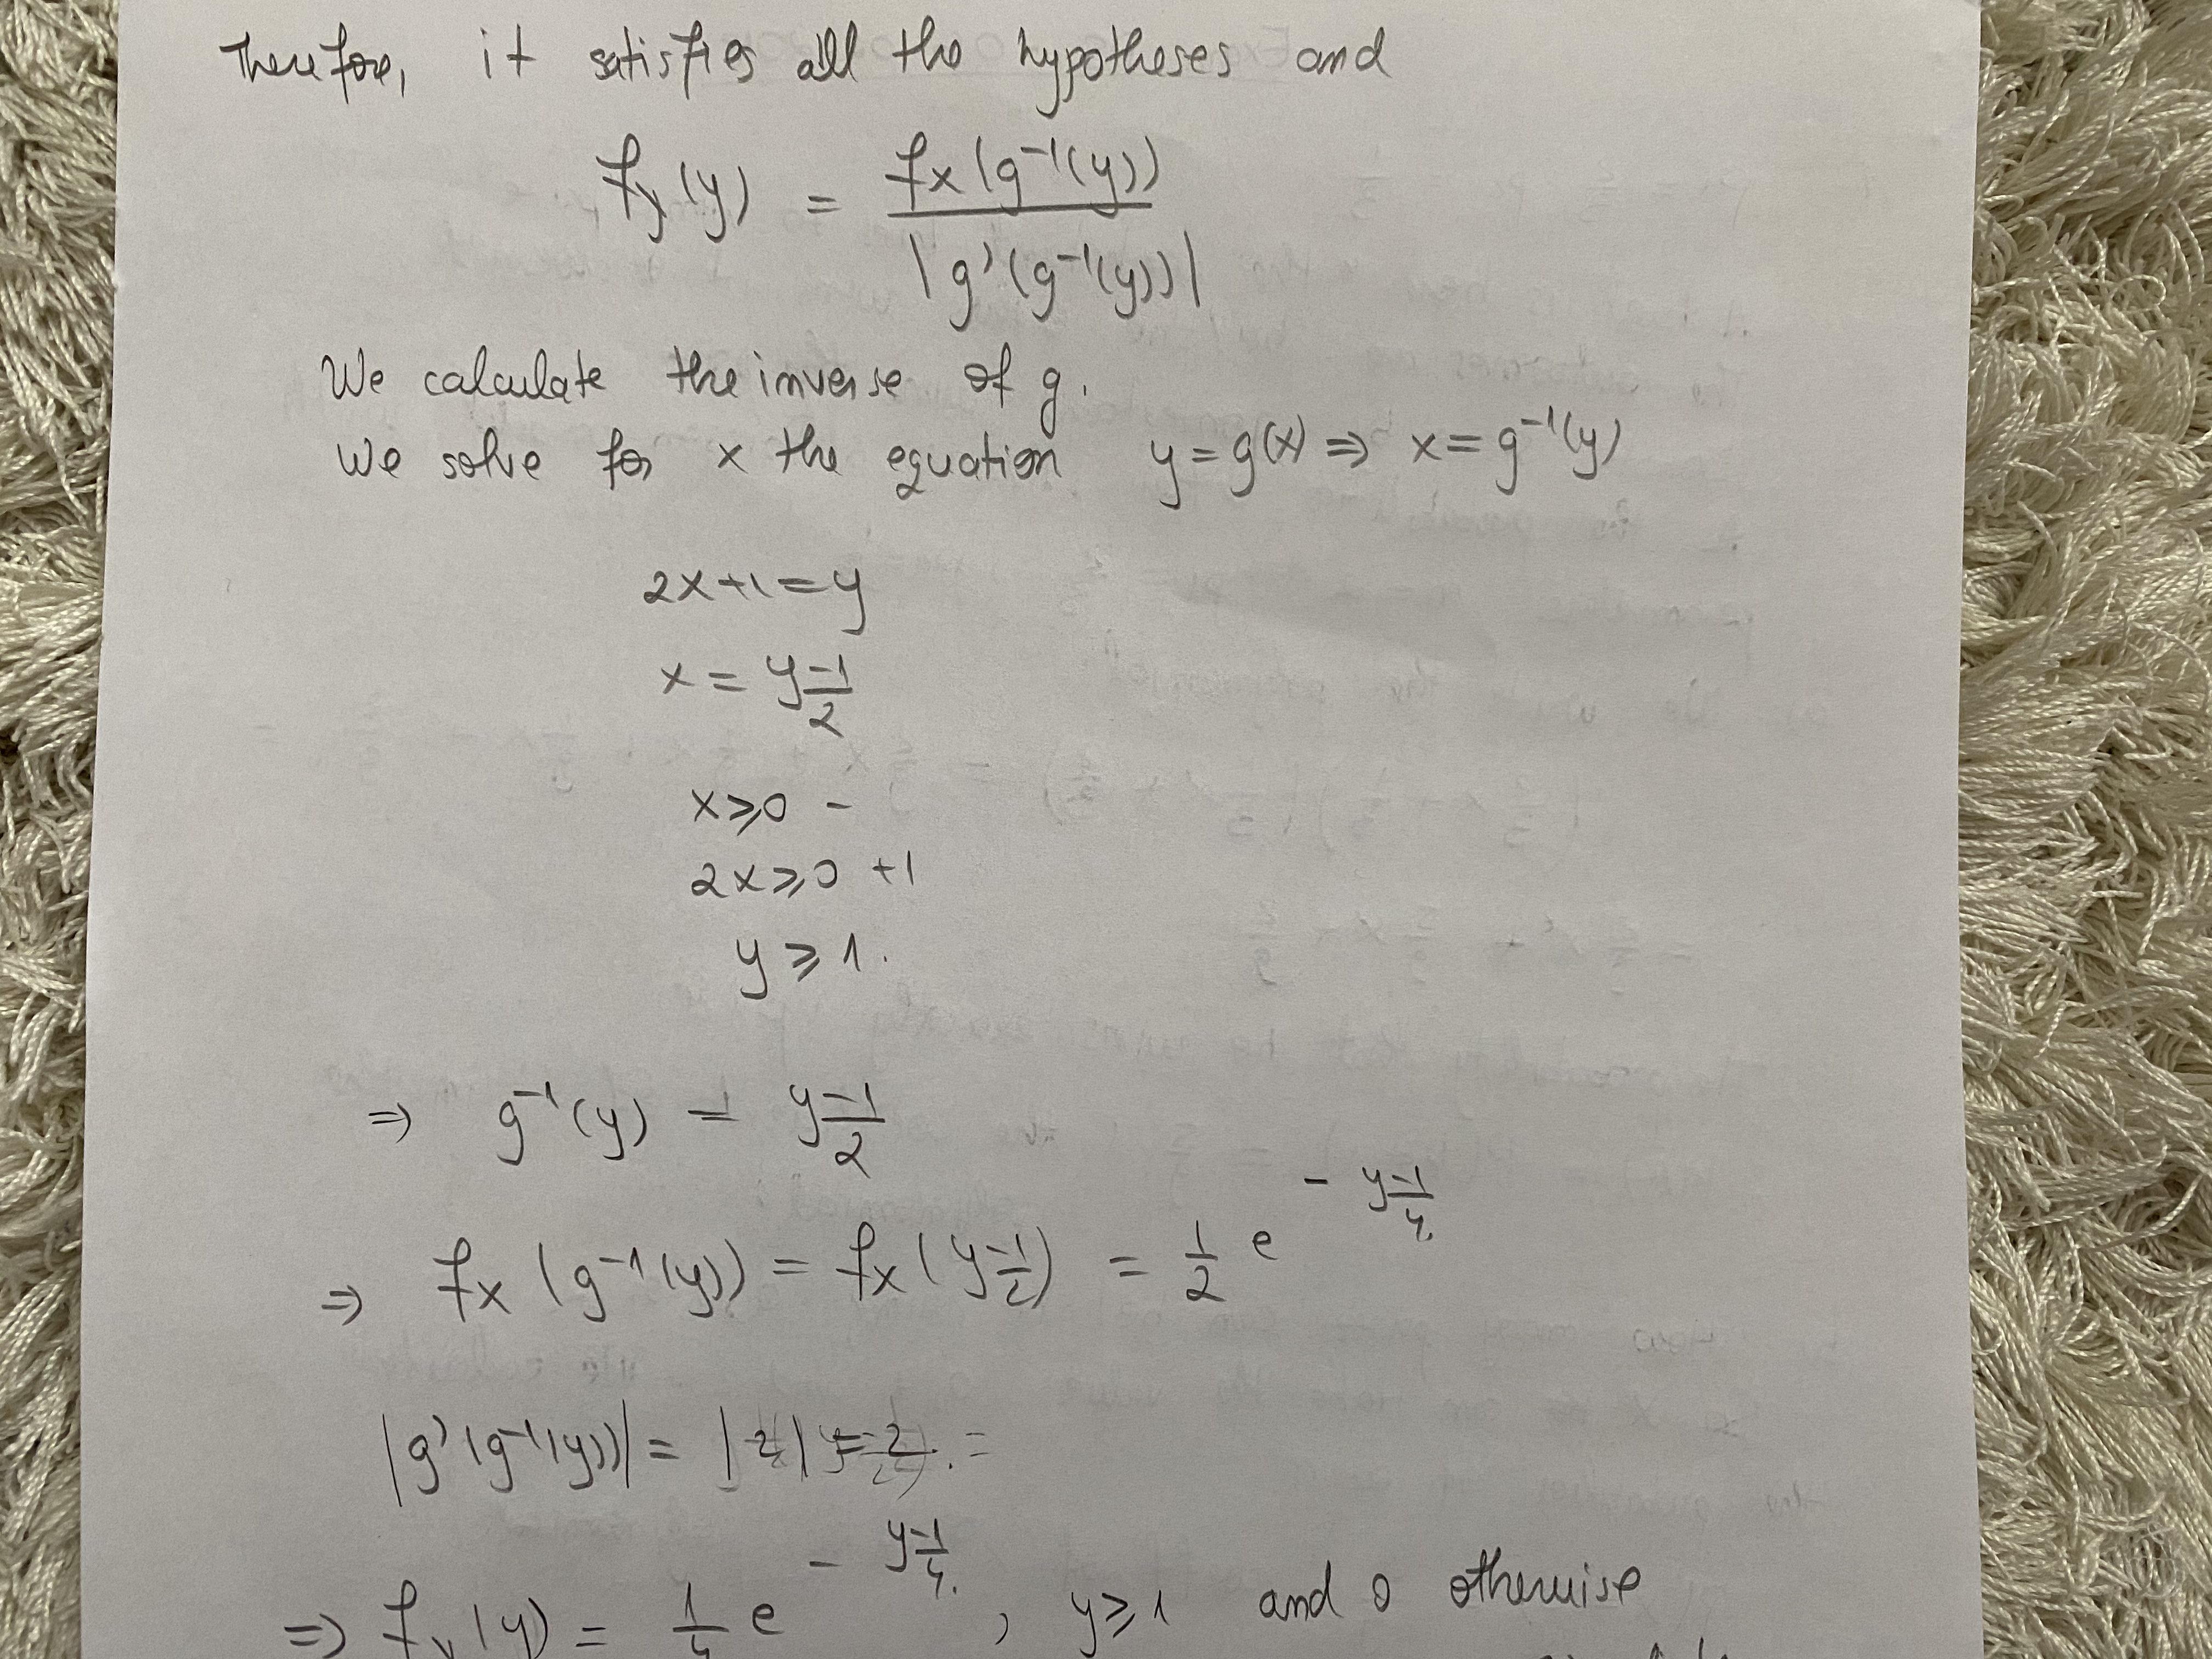 Therefore, it satisfies all the hypotheses and
fy(y) = fx(g⁻¹(y)) / |g'(g⁻¹(y))|
We calculate the inverse of g.
We solve for x the equation y = g(x) ⇒ x = g⁻¹(y)
2x+1 = y
x = y-1/2
x ⩾ 0 -
2x ⩾ 0 +1
y ⩾ 1.
⇒ g⁻¹(y) = y-1/2
⇒ fx(g⁻¹(y)) = fx(y-1/2) = 1/2 e^(- y-1/4)
|g'(g⁻¹(y))| = |2| = 2. =
⇒ fy(y) = 1/4 e^(- y-1/4), y ⩾ 1 and 0 otherwise